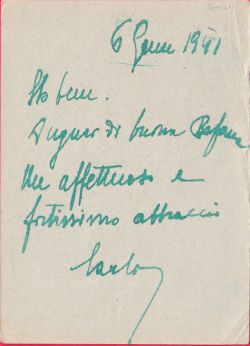 6 Genn 1941
Sto bene.
Auguri di buona Befana
Un affettuoso e
fortissimo abbraccio
Carlo